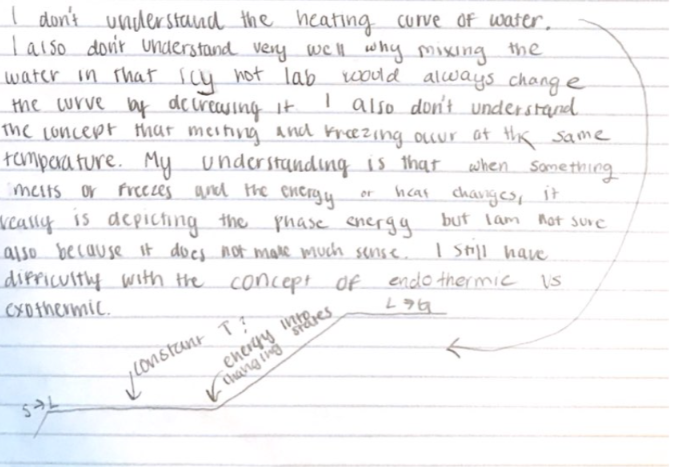 I don't understand the heating curve of water.
I also don't understand very well why mixing the
water in that icy hot lab would always change
the curve by decreasing it. I also don't understand
the concept that melting and freezing occur at the same
temperature. My understanding is that when something
melts or freezes and the energy or heat changes, it
really is depicting the phase energy but I am not sure
also because it does not make much sense. I still have
difficultly with the concept of endothermic vs
exothermic.
L → G
constant T?
energy into
changing states
S → L